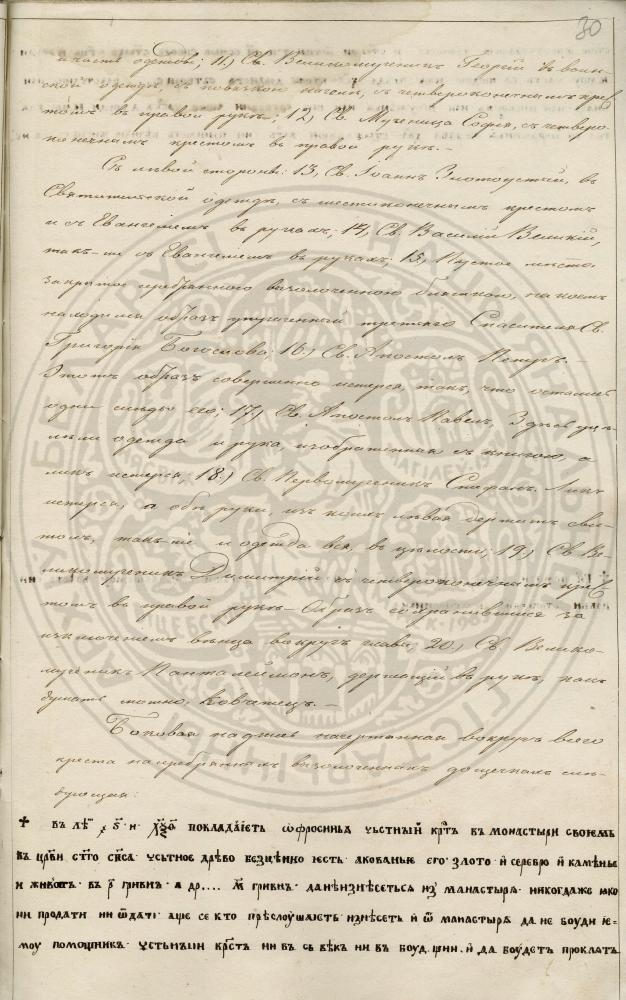 30
и часть одежды; 11.) Св. Великомученикъ Георгій въ воин-
ской одеждѣ, съ повязкою на челѣ, съ четвероконечнымъ крес-
томъ въ правой рукѣ; 12.) Св. Мученица Софія, съ четверо-
конечнымъ крестомъ въ правой рукѣ. –
Съ лѣвой стороны: 13.) Св. Іоаннъ Златоустый, въ
Святительской одеждѣ, съ шестиконечнымъ крестомъ
и съ Евангеліемъ въ рукахъ; 14.) Св. Василій Великій,
такъ-же съ Евангеліемъ въ рукахъ; 15.) Пустое мѣсто,
закрытое серебрянною вызолоченною бляшкою, на коемъ
находился образъ утраченный Святителя Св.
Григорія Богослова; 16.) Св. Апостолъ Петръ. –
Этотъ образъ совершенно истерся, такъ, что остались
одни слѣды его; 17.) Св. Апостолъ Павелъ. Здѣсь уцѣ-
лѣли одежда и рука, изображенная съ книгою, а
ликъ истерся; 18.) Св. Первомученикъ Стефанъ. Ликъ
истерся, а обѣ руки, изъ коихъ лѣвая держитъ сви-
токъ, такъ-же и одежда вся, въ цѣлости; 19.) Св. Ве-
ликомученикъ Димитрій съ четвероконечнымъ крес-
томъ въ правой рукѣ. Образъ сохранившійся за
исключеніемъ вѣнца вокругъ главы; 20.) Св. Велико-
мученикъ Панталеймонъ, держащій въ рукѣ, какъ
думать можно, ковчежецъ. –
Боковая надпись начертанная вокругъ всего
креста на серебрянныхъ вызолоченныхъ дощечкахъ слѣ-
дующая:
✝ въ лѣ҃ ҂ѕ҃ и х҃ѯ҃ѳ покладаѥть ѡфросинья чьстныи крс҃тъ въ монастыри своѥмь
въ цр҃кви ст҃го сп҃са чьстноѥ дрѣво бесцѣнно ѥсть а кованьѥ его злото и серебро и каменьѥ
и въ р҃ гривнъ а др.... м҃ гривнъ да не изнѣсѣться из манастыря никогдаже яко
ни продати ни ѿдати аще се кто прѣслоушаѥть изнѣсеть и ѿ манастыря да не боуди ѥ=
моу помощникъ чьстьныи крс҃тъ ни въ сь вѣкъ ни въ боуд.щии и да боудеть проклятъ